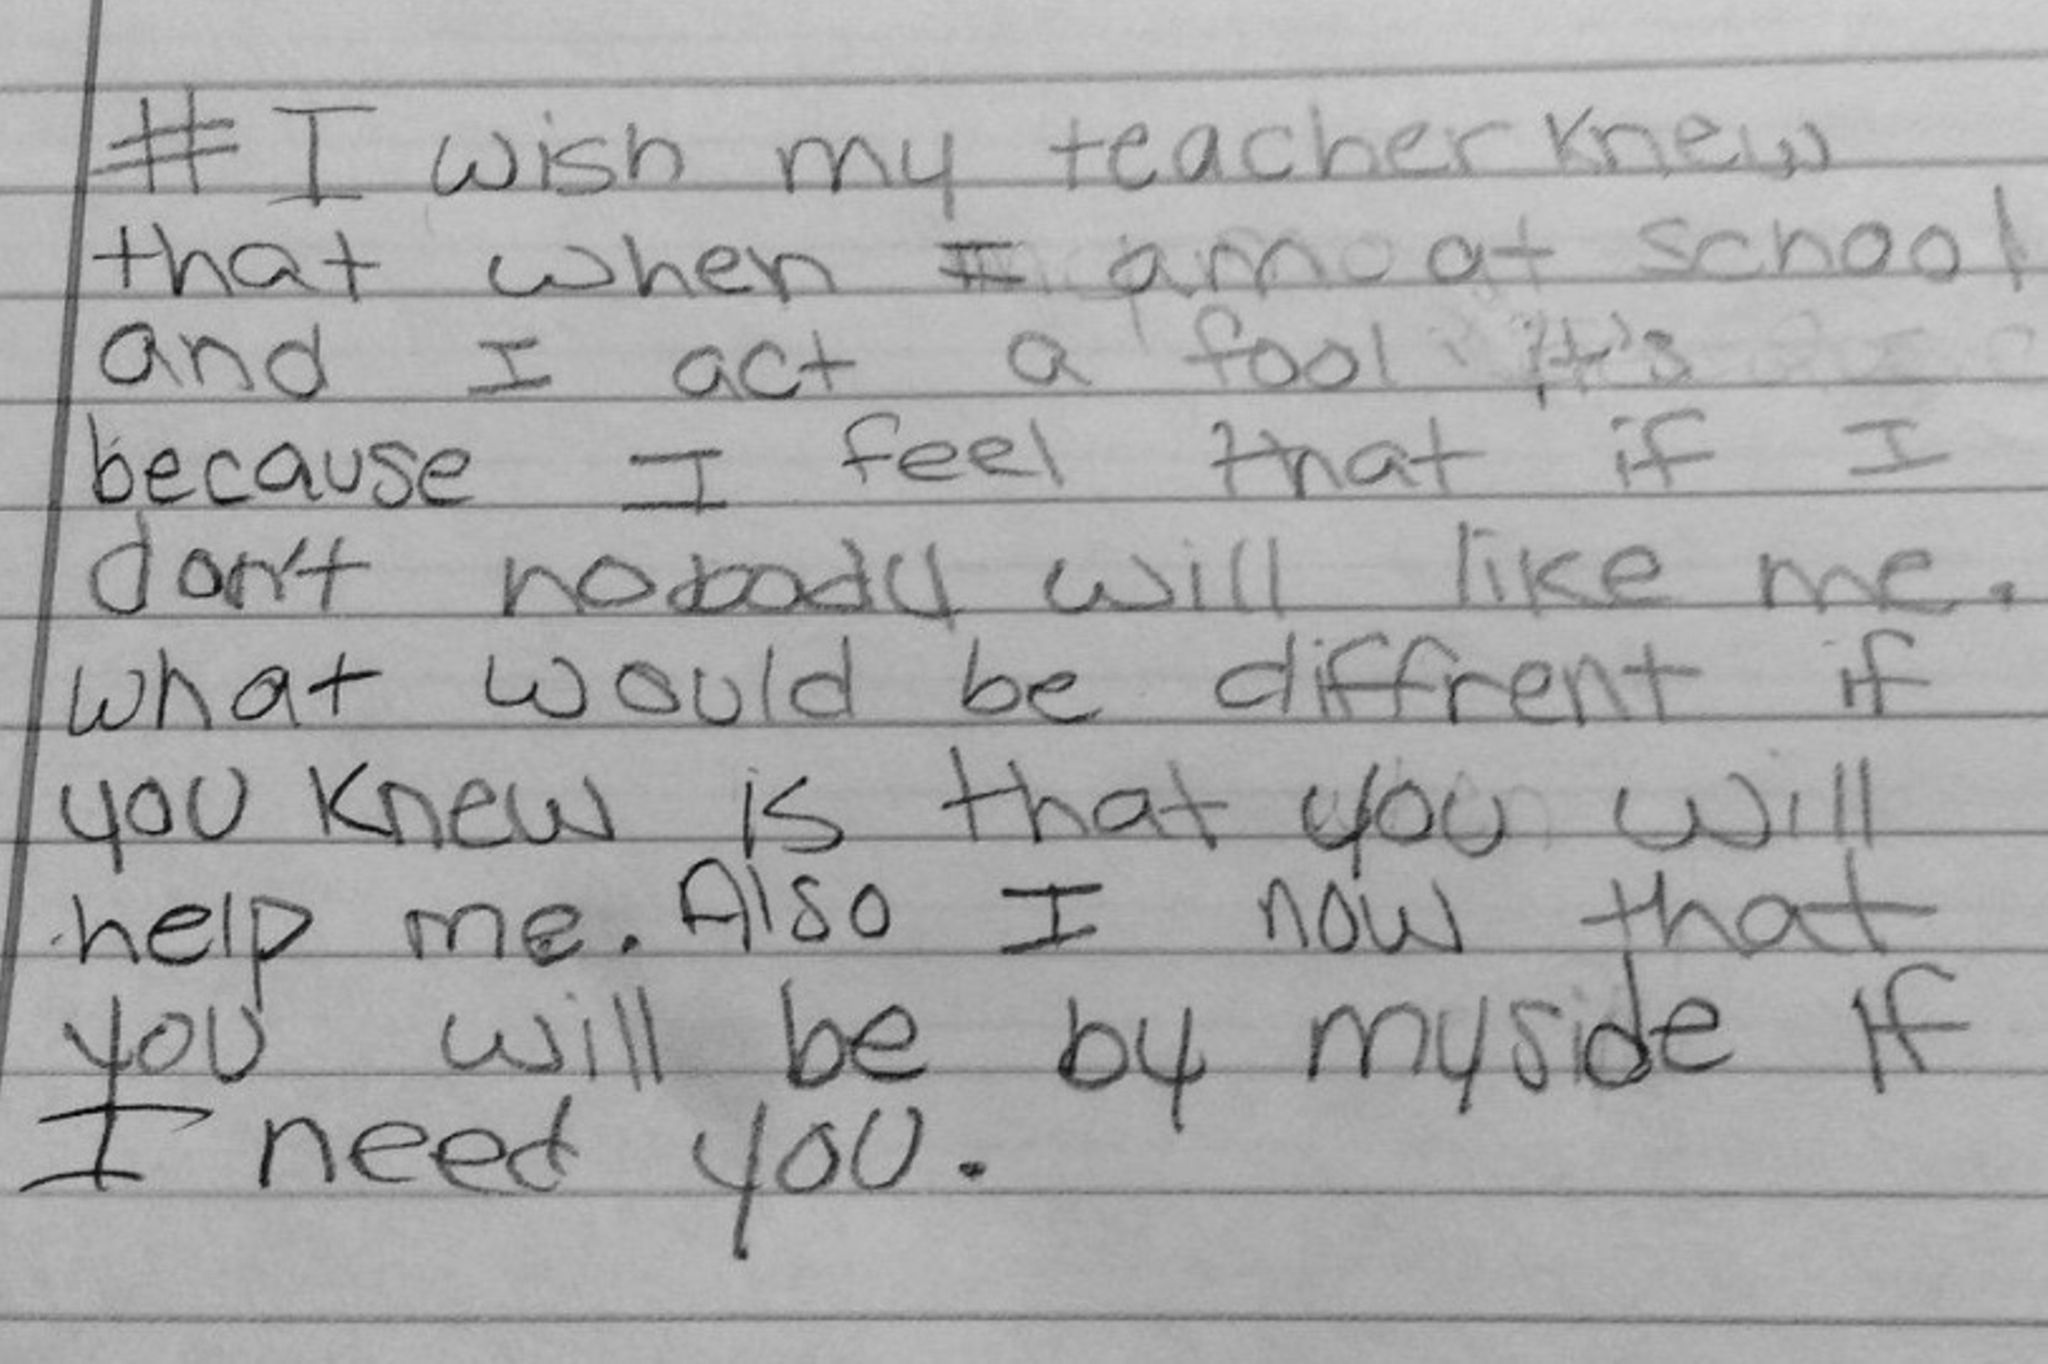 # I wish my teacher knew
that when I am at school
and I act a fool it's
because I feel that if I
don't nobody will like me.
what would be diffrent if
you knew is that you will
help me. Also I now that
you will be by myside if
I need you.